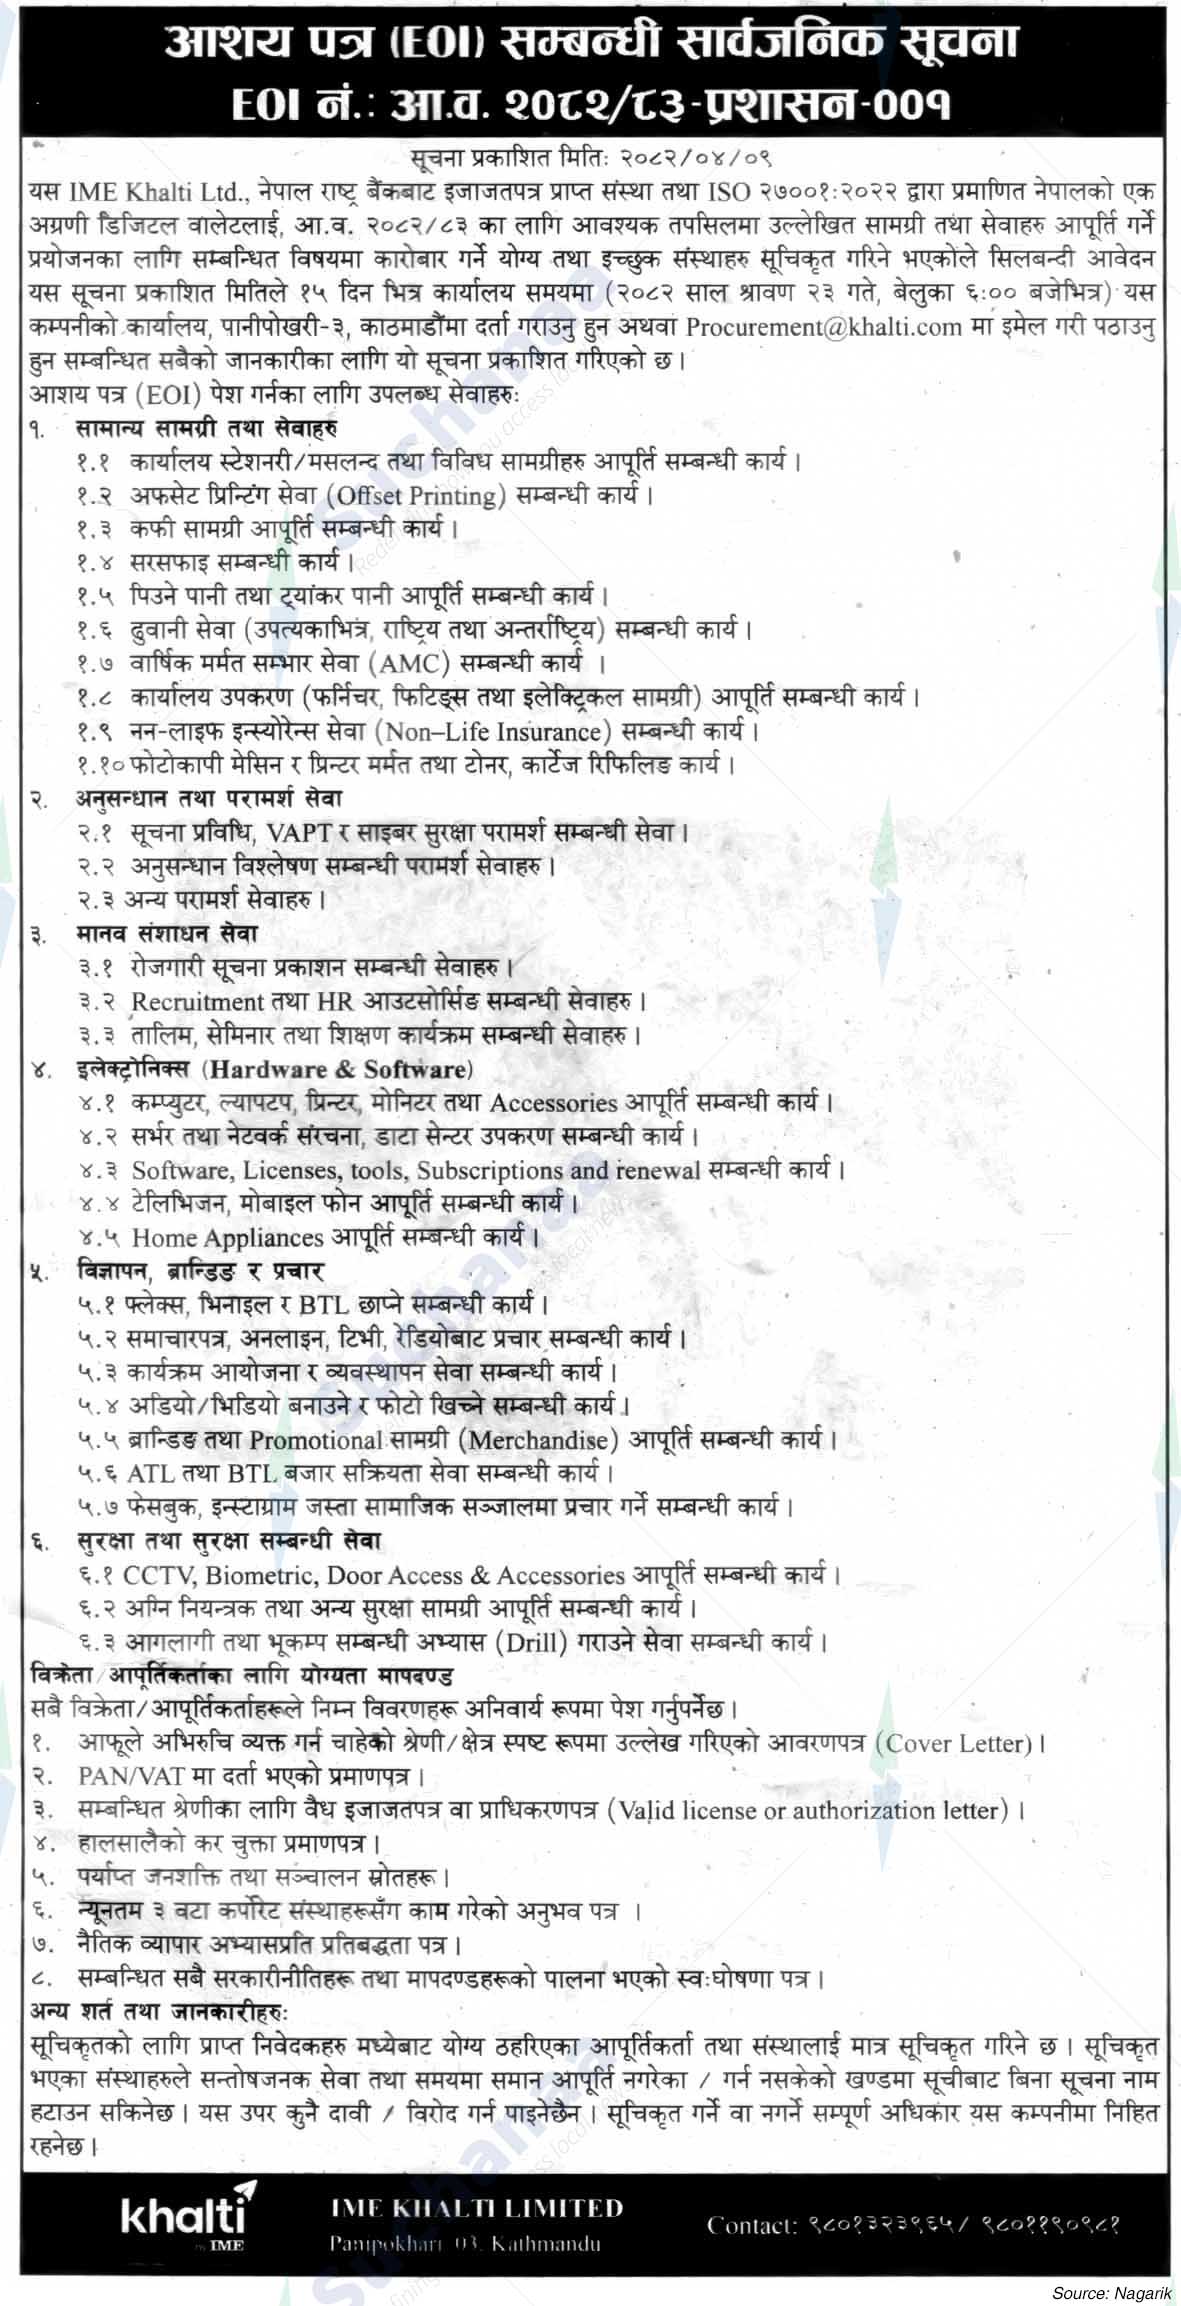 आशय पत्र (EOI) सम्बन्धी सार्वजनिक सूचना
EOI नं.: आ.व. २०८२/८३-प्रशासन-००१
सूचना प्रकाशित मितिः २०८२/०४/०९
यस IME Khalti Ltd., नेपाल राष्ट्र बैंकबाट इजाजतपत्र प्राप्त संस्था तथा ISO २७००१:२०२२ द्वारा प्रमाणित नेपालको एक
अग्रणी डिजिटल वालेटलाई, आ.व. २०८२/८३ का लागि आवश्यक तपसिलमा उल्लेखित सामग्री तथा सेवाहरु आपूर्ति गर्ने
प्रयोजनका लागि सम्बन्धित विषयमा कारोबार गर्ने योग्य तथा इच्छुक संस्थाहरु सूचिकृत गरिने भएकोले सिलबन्दी आवेदन
यस सूचना प्रकाशित मितिले १५ दिन भित्र कार्यालय समयमा (२०८२ साल श्रावण २३ गते, बेलुका ६:०० बजेभित्र) यस
कम्पनीको कार्यालय, पानीपोखरी-३, काठमाडौंमा दर्ता गराउनु हुन अथवा Procurement@khalti.com मा इमेल गरी पठाउनु
हुन सम्बन्धित सबैको जानकारीका लागि यो सूचना प्रकाशित गरिएको छ।
आशय पत्र (EOI) पेश गर्नका लागि उपलब्ध सेवाहरुः
१. सामान्य सामग्री तथा सेवाहरु
१.१ कार्यालय स्टेशनरी/मसलन्द तथा विविध सामग्रीहरु आपूर्ति सम्बन्धी कार्य।
१.२ अफसेट प्रिन्टिंग सेवा (Offset Printing) सम्बन्धी कार्य।
१.३ कफी सामग्री आपूर्ति सम्बन्धी कार्य।
१.४ सरसफाइ सम्बन्धी कार्य।
१.५ पिउने पानी तथा ट्यांकर पानी आपूर्ति सम्बन्धी कार्य।
१.६ ढुवानी सेवा (उपत्यकाभित्र, राष्ट्रिय तथा अन्तर्राष्ट्रिय) सम्बन्धी कार्य।
१.७ वार्षिक मर्मत सम्भार सेवा (AMC) सम्बन्धी कार्य ।
१.८ कार्यालय उपकरण (फर्निचर, फिटिङ्स तथा इलेक्ट्रिकल सामग्री) आपूर्ति सम्बन्धी कार्य।
१.९ नन-लाइफ इन्स्योरेन्स सेवा (Non–Life Insurance) सम्बन्धी कार्य।
१.१० फोटोकापी मेसिन र प्रिन्टर मर्मत तथा टोनर, कार्टेज रिफिलिङ कार्य।
२. अनुसन्धान तथा परामर्श सेवा
२.१ सूचना प्रविधि, VAPT र साइबर सुरक्षा परामर्श सम्बन्धी सेवा।
२.२ अनुसन्धान विश्लेषण सम्बन्धी परामर्श सेवाहरु।
२.३ अन्य परामर्श सेवाहरु।
३. मानव संशाधन सेवा
३.१ रोजगारी सूचना प्रकाशन सम्बन्धी सेवाहरु।
३.२ Recruitment तथा HR आउटसोर्सिङ सम्बन्धी सेवाहरु।
३.३ तालिम, सेमिनार तथा शिक्षण कार्यक्रम सम्बन्धी सेवाहरु।
४. इलेक्ट्रोनिक्स (Hardware & Software)
४.१ कम्प्युटर, ल्यापटप, प्रिन्टर, मोनिटर तथा Accessories आपूर्ति सम्बन्धी कार्य।
४.२ सर्भर तथा नेटवर्क संरचना, डाटा सेन्टर उपकरण सम्बन्धी कार्य।
४.३ Software, Licenses, tools, Subscriptions and renewal सम्बन्धी कार्य।
४.४ टेलिभिजन, मोबाइल फोन आपूर्ति सम्बन्धी कार्य।
४.५ Home Appliances आपूर्ति सम्बन्धी कार्य।
५. विज्ञापन, ब्रान्डिङ र प्रचार
५.१ फ्लेक्स, भिनाइल र BTL छाप्ने सम्बन्धी कार्य।
५.२ समाचारपत्र, अनलाइन, टिभी, रेडियोबाट प्रचार सम्बन्धी कार्य।
५.३ कार्यक्रम आयोजना र व्यवस्थापन सेवा सम्बन्धी कार्य।
५.४ अडियो/भिडियो बनाउने र फोटो खिच्ने सम्बन्धी कार्य।
५.५ ब्रान्डिङ तथा Promotional सामग्री (Merchandise) आपूर्ति सम्बन्धी कार्य।
५.६ ATL तथा BTL बजार सक्रियता सेवा सम्बन्धी कार्य।
५.७ फेसबुक, इन्स्टाग्राम जस्ता सामाजिक सञ्जालमा प्रचार गर्ने सम्बन्धी कार्य।
६. सुरक्षा तथा सुरक्षा सम्बन्धी सेवा
६.१ CCTV, Biometric, Door Access & Accessories आपूर्ति सम्बन्धी कार्य।
६.२ अग्नि नियन्त्रक तथा अन्य सुरक्षा सामग्री आपूर्ति सम्बन्धी कार्य।
६.३ आगलागी तथा भूकम्प सम्बन्धी अभ्यास (Drill) गराउने सेवा सम्बन्धी कार्य।
विक्रेता/आपूर्तिकर्ताका लागि योग्यता मापदण्ड
सबै विक्रेता/आपूर्तिकर्ताहरूले निम्न विवरणहरू अनिवार्य रूपमा पेश गर्नुपर्नेछ।
१. आफूले अभिरुचि व्यक्त गर्न चाहेको श्रेणी/क्षेत्र स्पष्ट रूपमा उल्लेख गरिएको आवरणपत्र (Cover Letter)।
२. PAN/VAT मा दर्ता भएको प्रमाणपत्र।
३. सम्बन्धित श्रेणीका लागि वैध इजाजतपत्र वा प्राधिकरणपत्र (Valid license or authorization letter)।
४. हालसालैको कर चुक्ता प्रमाणपत्र।
५. पर्याप्त जनशक्ति तथा सञ्चालन स्रोतहरू।
६. न्यूनतम ३ वटा कर्पोरेट संस्थाहरूसँग काम गरेको अनुभव पत्र ।
७. नैतिक व्यापार अभ्यासप्रति प्रतिबद्धता पत्र।
८. सम्बन्धित सबै सरकारीनीतिहरू तथा मापदण्डहरूको पालना भएको स्वःघोषणा पत्र।
अन्य शर्त तथा जानकारीहरुः
सूचिकृतको लागि प्राप्त निवेदकहरु मध्येबाट योग्य ठहरिएका आपूर्तिकर्ता तथा संस्थालाई मात्र सूचिकृत गरिने छ। सूचिकृत
भएका संस्थाहरुले सन्तोषजनक सेवा तथा समयमा समान आपूर्ति नगरेका / गर्न नसकेको खण्डमा सूचीबाट बिना सूचना नाम
हटाउन सकिनेछ। यस उपर कुनै दावी / विरोद गर्न पाइनेछैन। सूचिकृत गर्ने वा नगर्ने सम्पूर्ण अधिकार यस कम्पनीमा निहित
रहनेछ।
khalti
by IME
IME KHALTI LIMITED
Panipokhari 03, Kathmandu
Contact: ९८०१३२३९६५/ ९८०११९०९८१
Source: Nagarik